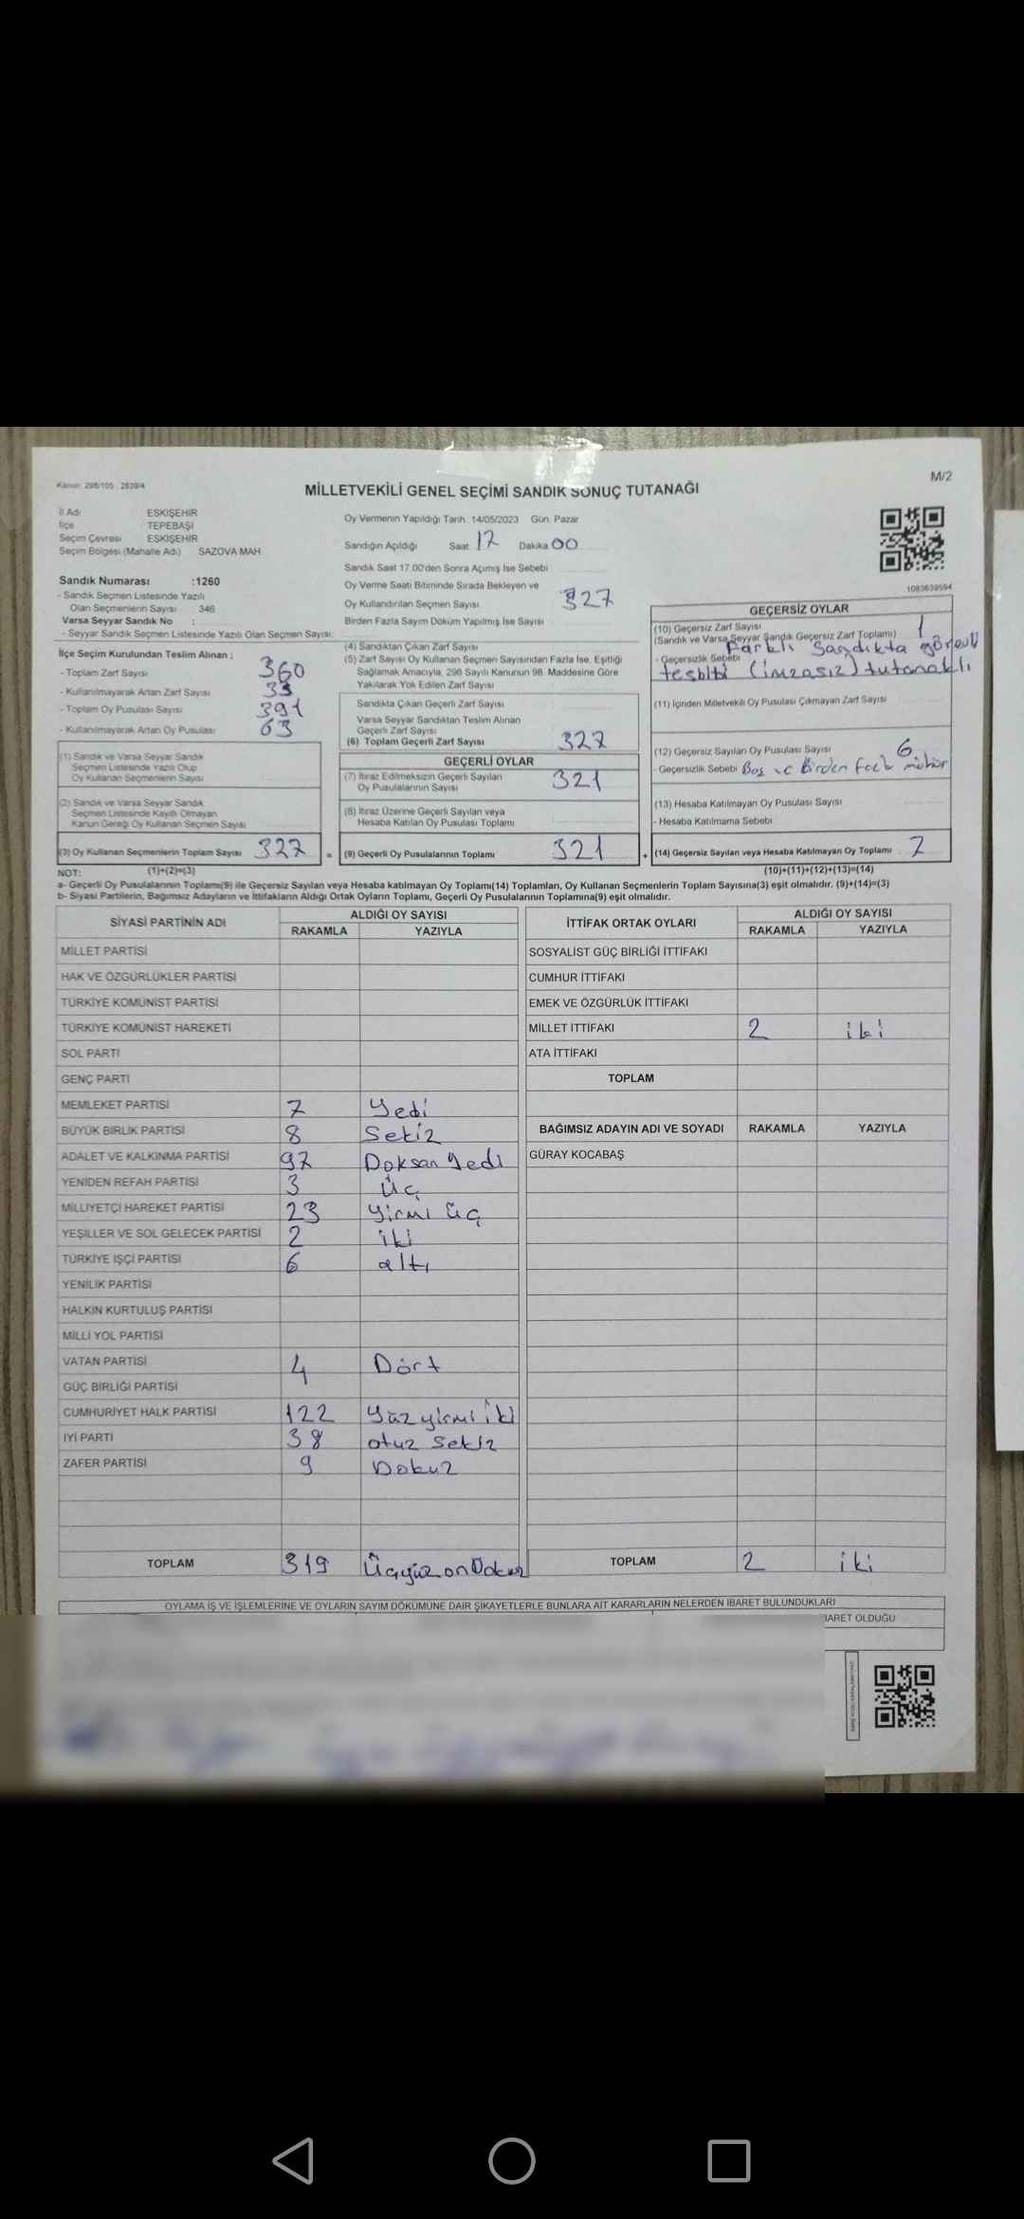 Kanun: 298/105 2839/4
M/2
MİLLETVEKİLİ GENEL SEÇİMİ SANDIK SONUÇ TUTANAĞI
İl Adı ESKİŞEHİR
İlçe TEPEBAŞI
Seçim Çevresi ESKİŞEHİR
Seçim Bölgesi (Mahalle Adı) SAZOVA MAH
Sandık Numarası :1260
- Sandık Seçmen Listesinde Yazılı
Olan Seçmenlerin Sayısı 346
Varsa Seyyar Sandık No :
- Seyyar Sandık Seçmen Listesinde Yazılı Olan Seçmen Sayısı:
İlçe Seçim Kurulundan Teslim Alınan ;
- Toplam Zarf Sayısı 360
- Kullanılmayarak Artan Zarf Sayısı 33
- Toplam Oy Pusulası Sayısı 391
- Kullanılmayarak Artan Oy Pusulası 63
(1) Sandık ve Varsa Seyyar Sandık
Seçmen Listesinde Yazılı Olup
Oy Kullanan Seçmenlerin Sayısı
(2) Sandık ve Varsa Seyyar Sandık
Seçmen Listesinde Kayıtlı Olmayan
Kanun Gereği Oy Kullanan Seçmen Sayısı
(3) Oy Kullanan Seçmenlerin Toplam Sayısı 327 =
Oy Vermenin Yapıldığı Tarih 14/05/2023 Gün. Pazar
Sandığın Açıldığı Saat 17 Dakika 00
Sandık Saat 17.00'den Sonra Açımış İse Sebebi
Oy Verme Saati Bitiminde Sırada Bekleyen ve
Oy Kullandırılan Seçmen Sayısı 327
Birden Fazla Sayım Döküm Yapılmış İse Sayısı
(4) Sandıktan Çıkan Zarf Sayısı
(5) Zarf Sayısı Oy Kullanan Seçmen Sayısından Fazla İse, Eşitliği
Sağlamak Amacıyla, 298 Sayılı Kanunun 98. Maddesine Göre
Yakılarak Yok Edilen Zarf Sayısı
Sandıkta Çıkan Geçerli Zarf Sayısı
Varsa Seyyar Sandıktan Teslim Alınan
Geçerli Zarf Sayısı
(6) Toplam Geçerli Zarf Sayısı 327
GEÇERLİ OYLAR
(7) İtiraz Edilmeksizin Geçerli Sayılan
Oy Pusulalarının Sayısı 321
(8) İtiraz Üzerine Geçerli Sayılan veya
Hesaba Katılan Oy Pusulası Toplamı
(9) Geçerli Oy Pusulalarının Toplamı 321 +
1083639594
GEÇERSİZ OYLAR
(10) Geçersiz Zarf Sayısı 1
(Sandık ve Varsa Seyyar Sandık Geçersiz Zarf Toplamı)
- Geçersizlik Sebebi Farklı Sandıkta görevli
tesbiti (imzasız) tutanaklı
(11) İçinden Milletvekili Oy Pusulası Çıkmayan Zarf Sayısı
(12) Geçersiz Sayılan Oy Pusulası Sayısı 6
- Geçersizlik Sebebi Boş ve Birden fazla mühür
(13) Hesaba Katılmayan Oy Pusulası Sayısı
- Hesaba Katılmama Sebebi
(14) Geçersiz Sayılan veya Hesaba Katılmayan Oy Toplamı 7
NOT: (1)+(2)=(3) (10)+(11)+(12)+(13)=(14)
a- Geçerli Oy Pusulalarının Toplamı(9) ile Geçersiz Sayılan veya Hesaba katılmayan Oy Toplamı(14) Toplamları, Oy Kullanan Seçmenlerin Toplam Sayısına(3) eşit olmalıdır. (9)+(14)=(3)
b- Siyasi Partilerin, Bağımsız Adayların ve İttifakların Aldığı Ortak Oyların Toplamı, Geçerli Oy Pusulalarının Toplamına(9) eşit olmalıdır.
SİYASİ PARTİNİN ADI ALDIĞI OY SAYISI
RAKAMLA YAZIYLA
MİLLET PARTİSİ
HAK VE ÖZGÜRLÜKLER PARTİSİ
TÜRKİYE KOMÜNİST PARTİSİ
TÜRKİYE KOMÜNİST HAREKETİ
SOL PARTİ
GENÇ PARTİ
MEMLEKET PARTİSİ 7 Yedi
BÜYÜK BİRLİK PARTİSİ 8 Sekiz
ADALET VE KALKINMA PARTİSİ 97 Doksan Yedi
YENİDEN REFAH PARTİSİ 3 Üç
MİLLİYETÇİ HAREKET PARTİSİ 23 Yirmi üç
YEŞİLLER VE SOL GELECEK PARTİSİ 2 iki
TÜRKİYE İŞÇİ PARTİSİ 6 altı
YENİLİK PARTİSİ
HALKIN KURTULUŞ PARTİSİ
MİLLİ YOL PARTİSİ
VATAN PARTİSİ 4 Dört
GÜÇ BİRLİĞİ PARTİSİ
CUMHURİYET HALK PARTİSİ 122 Yüz yirmi iki
İYİ PARTİ 38 otuz sekiz
ZAFER PARTİSİ 9 Dokuz
TOPLAM 319 Üçyüz on Dokuz
İTTİFAK ORTAK OYLARI ALDIĞI OY SAYISI
RAKAMLA YAZIYLA
SOSYALİST GÜÇ BİRLİĞİ İTTİFAKI
CUMHUR İTTİFAKI
EMEK VE ÖZGÜRLÜK İTTİFAKI
MİLLET İTTİFAKI 2 iki
ATA İTTİFAKI
TOPLAM
BAĞIMSIZ ADAYIN ADI VE SOYADI RAKAMLA YAZIYLA
GÜRAY KOCABAŞ
TOPLAM 2 iki
OYLAMA İŞ VE İŞLEMLERİNE VE OYLARIN SAYIM DÖKÜMÜNE DAİR ŞİKAYETLERLE BUNLARA AİT KARARLARIN NELERDEN İBARET BULUNDUKLARI
İBARET OLDUĞU